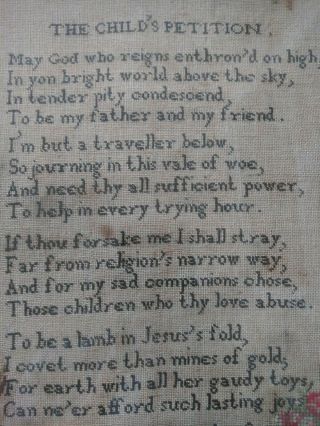 THE CHILD'S PETITION.
May God who reigns enthron'd on high,
In yon bright world above the sky,
In tender pity condescend,
To be my father and my friend.
I'm but a traveller below,
Sojourning in this vale of woe,
And need thy all sufficient power,
To help in every trying hour.
If thou forsake me I shall stray,
Far from religion's narrow way,
And for my sad companions chose,
Those children who thy love abuse.
To be a lamb in Jesus's fold,
I covet more than mines of gold,
For earth with all her gaudy toys,
Can ne'er afford such lasting joys